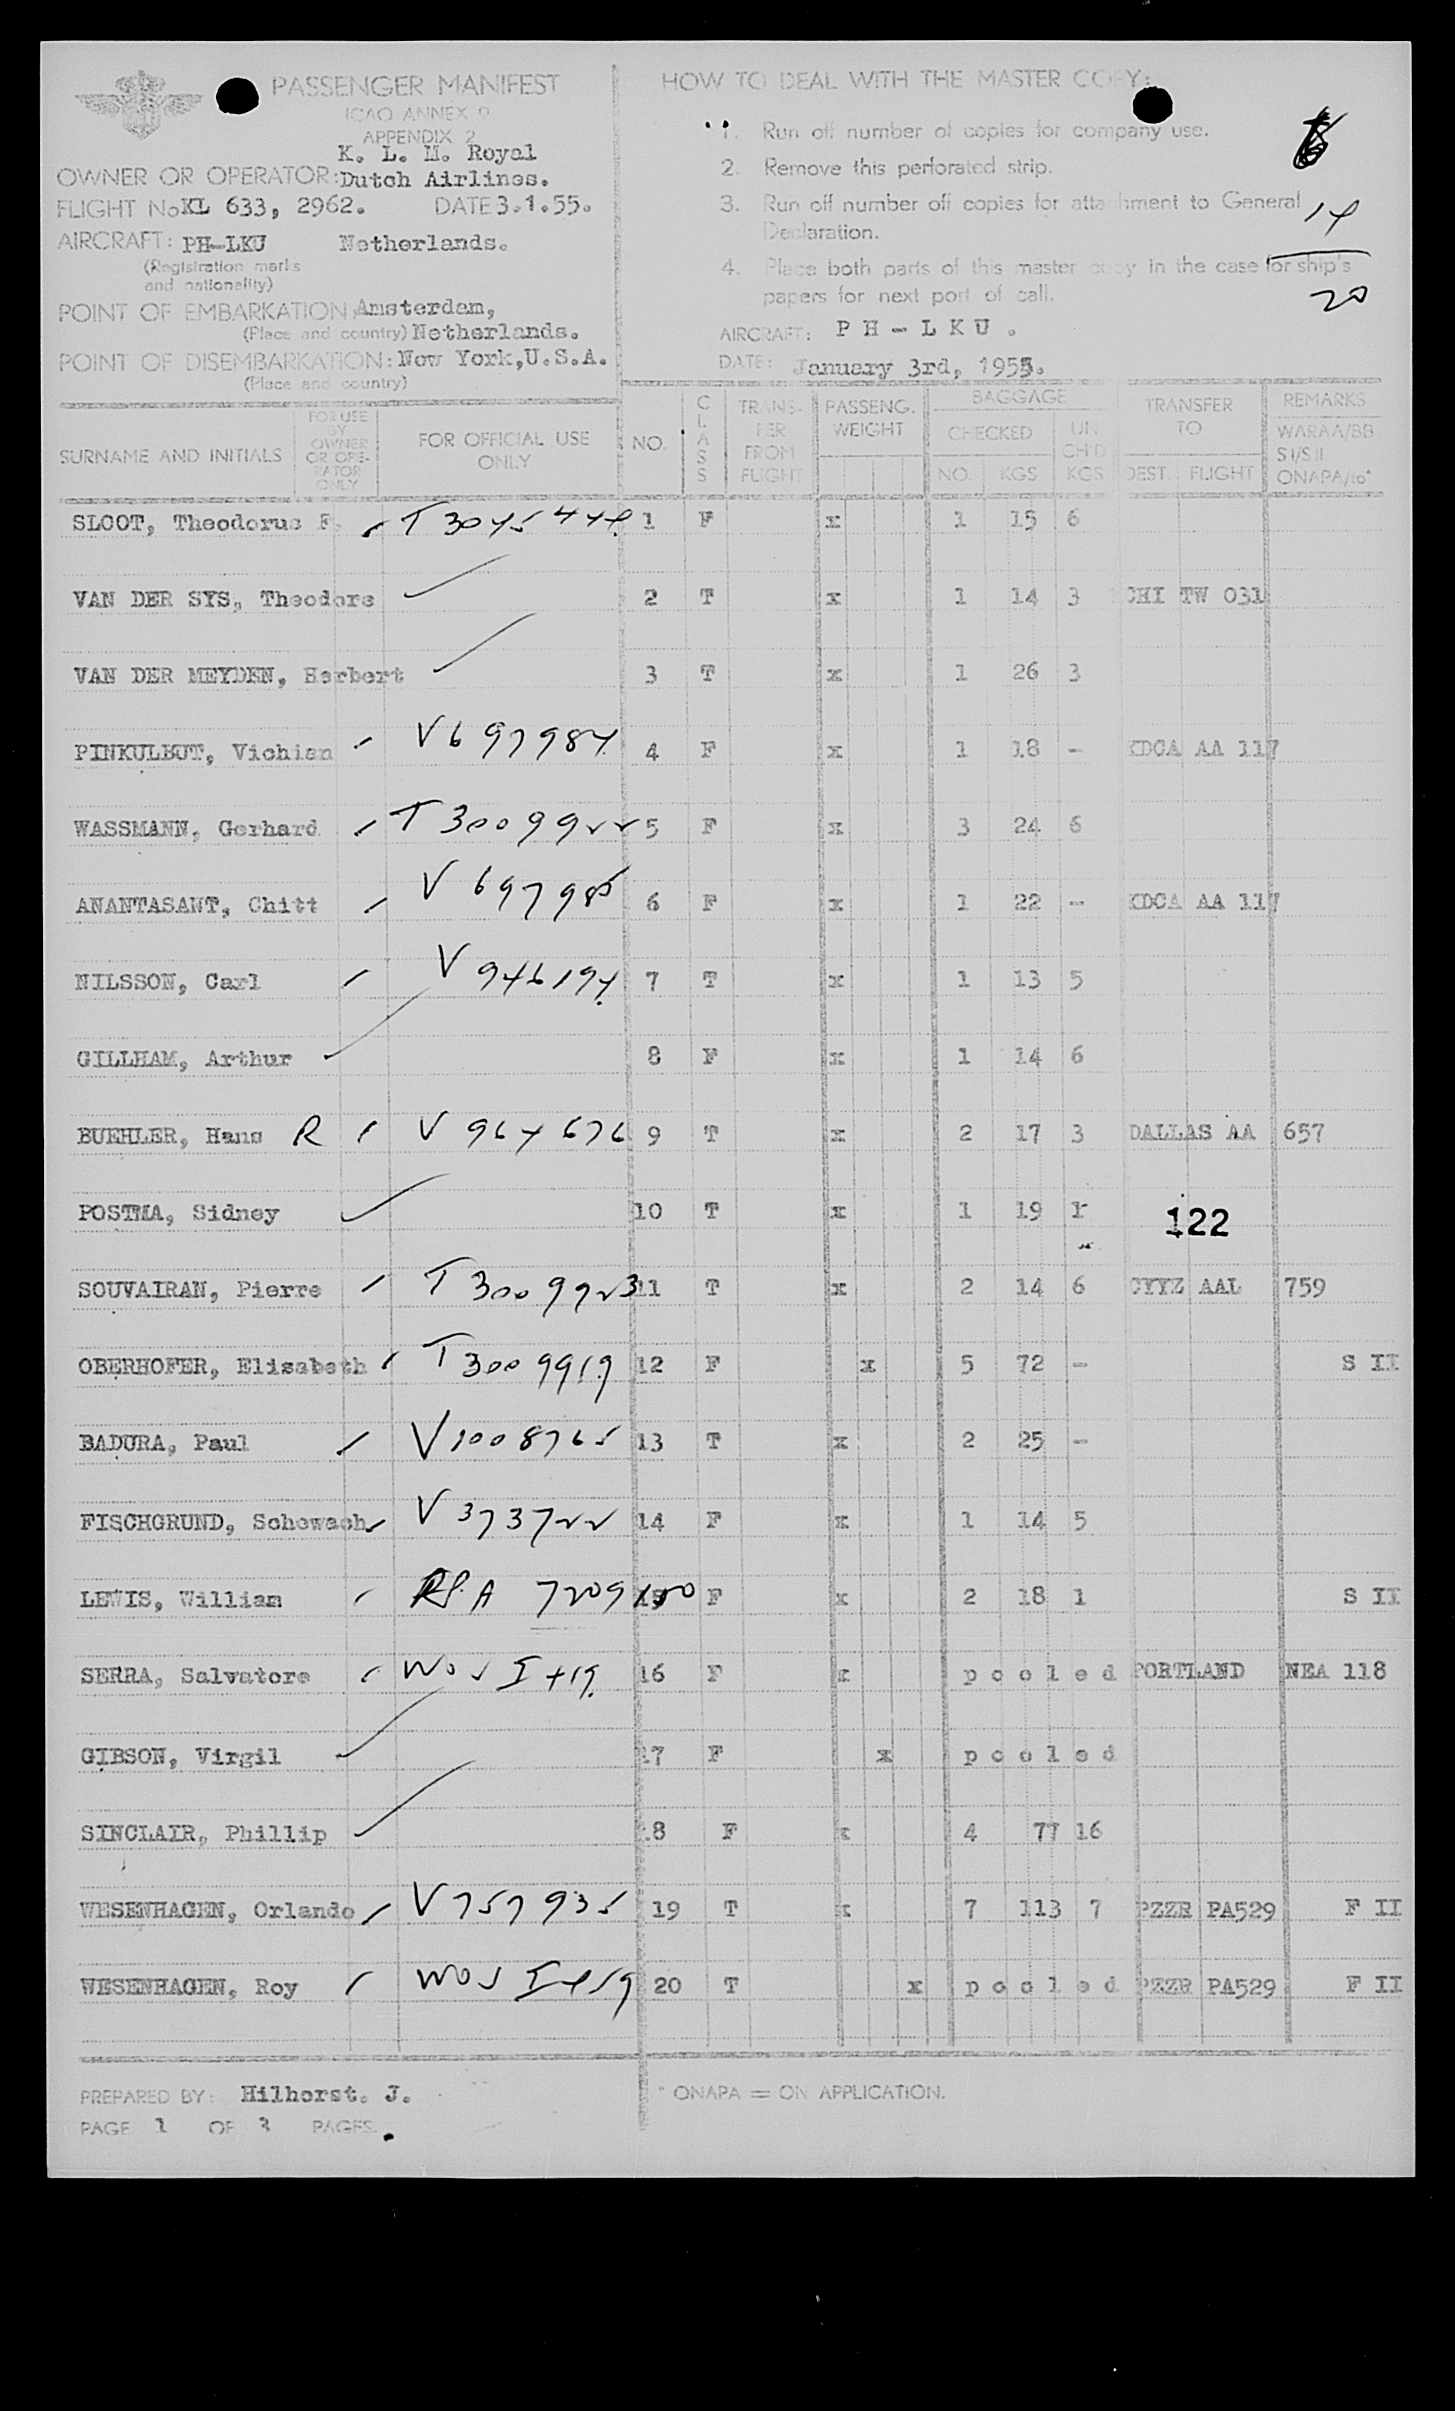 PASSENGER MANIFEST
ICAO ANNEX 9
APPENDIX 2
K. L. M. Royal
OWNER OR OPERATOR: Dutch Airlines.
FLIGHT No KL 633, 2962. DATE 3.1.55.
AIRCRAFT: PH-LKU Netherlands.
(Registration marks
and nationality)
POINT OF EMBARKATION Amsterdam,
(Place and country) Netherlands.
POINT OF DISEMBARKATION: New York, U.S.A.
(Place and country)
HOW TO DEAL WITH THE MASTER COPY:
1. Run off number of copies for company use.
2. Remove this perforated strip.
3. Run off number off copies for attachment to General
Declaration.
14
4. Place both parts of this master copy in the case for ship's
papers for next port of call.
20
AIRCRAFT: PH-LKU.
DATE: January 3rd, 1955.
SURNAME AND INITIALS
FOR USE BY OWNER OR OPE-RATOR ONLY
FOR OFFICIAL USE ONLY
NO.
CLASS
TRANS-FER FROM FLIGHT
PASSENG. WEIGHT
BAGGAGE
CHECKED
NO. KGS
UN CH'D KGS
TRANSFER TO
DEST. FLIGHT
REMARKS
WARAA/BB
S I/S II
ONAPA/to*
SLOOT, Theodorus F. T 3045444 1 F x 1 15 6
VAN DER SYS, Theodore 2 T x 1 14 3 CHI TW 031
VAN DER MEYDEN, Herbert 3 T x 1 26 3
PINKULBUT, Vichian V 697984 4 F x 1 18 - KDCA AA 117
WASSMANN, Gerhard T 3009922 5 F x 3 24 6
ANANTASANT, Chitt V 697985 6 F x 1 22 - KDCA AA 117
NILSSON, Carl V 946194 7 T x 1 13 5
GILLHAM, Arthur 8 F x 1 14 6
BUEHLER, Hans R V 964676 9 T x 2 17 3 DALLAS AA 657
POSTMA, Sidney 10 T x 1 19 1
122
SOUVAIRAN, Pierre T 3009923 11 T x 2 14 6 CYYZ AAL 759
OBERHOFER, Elisabeth T 3009919 12 F x 5 72 - S II
BADURA, Paul V 1008765 13 T x 2 25 -
FISCHGRUND, Schewach V 373722 14 F x 1 14 5
LEWIS, William A 7209100 15 F x 2 18 1 S II
SERRA, Salvatore 16 F x pooled PORTLAND NEA 118
GIBSON, Virgil 17 F x pooled
SINCLAIR, Phillip 18 F x 4 77 16
WESENHAGEN, Orlando V 757935 19 T x 7 113 7 PZZR PA529 F II
WESENHAGEN, Roy 20 T x pooled PZZR PA529 F II
PREPARED BY: Hilhorst. J.
* ONAPA = ON APPLICATION.
PAGE 1 OF 3 PAGES.